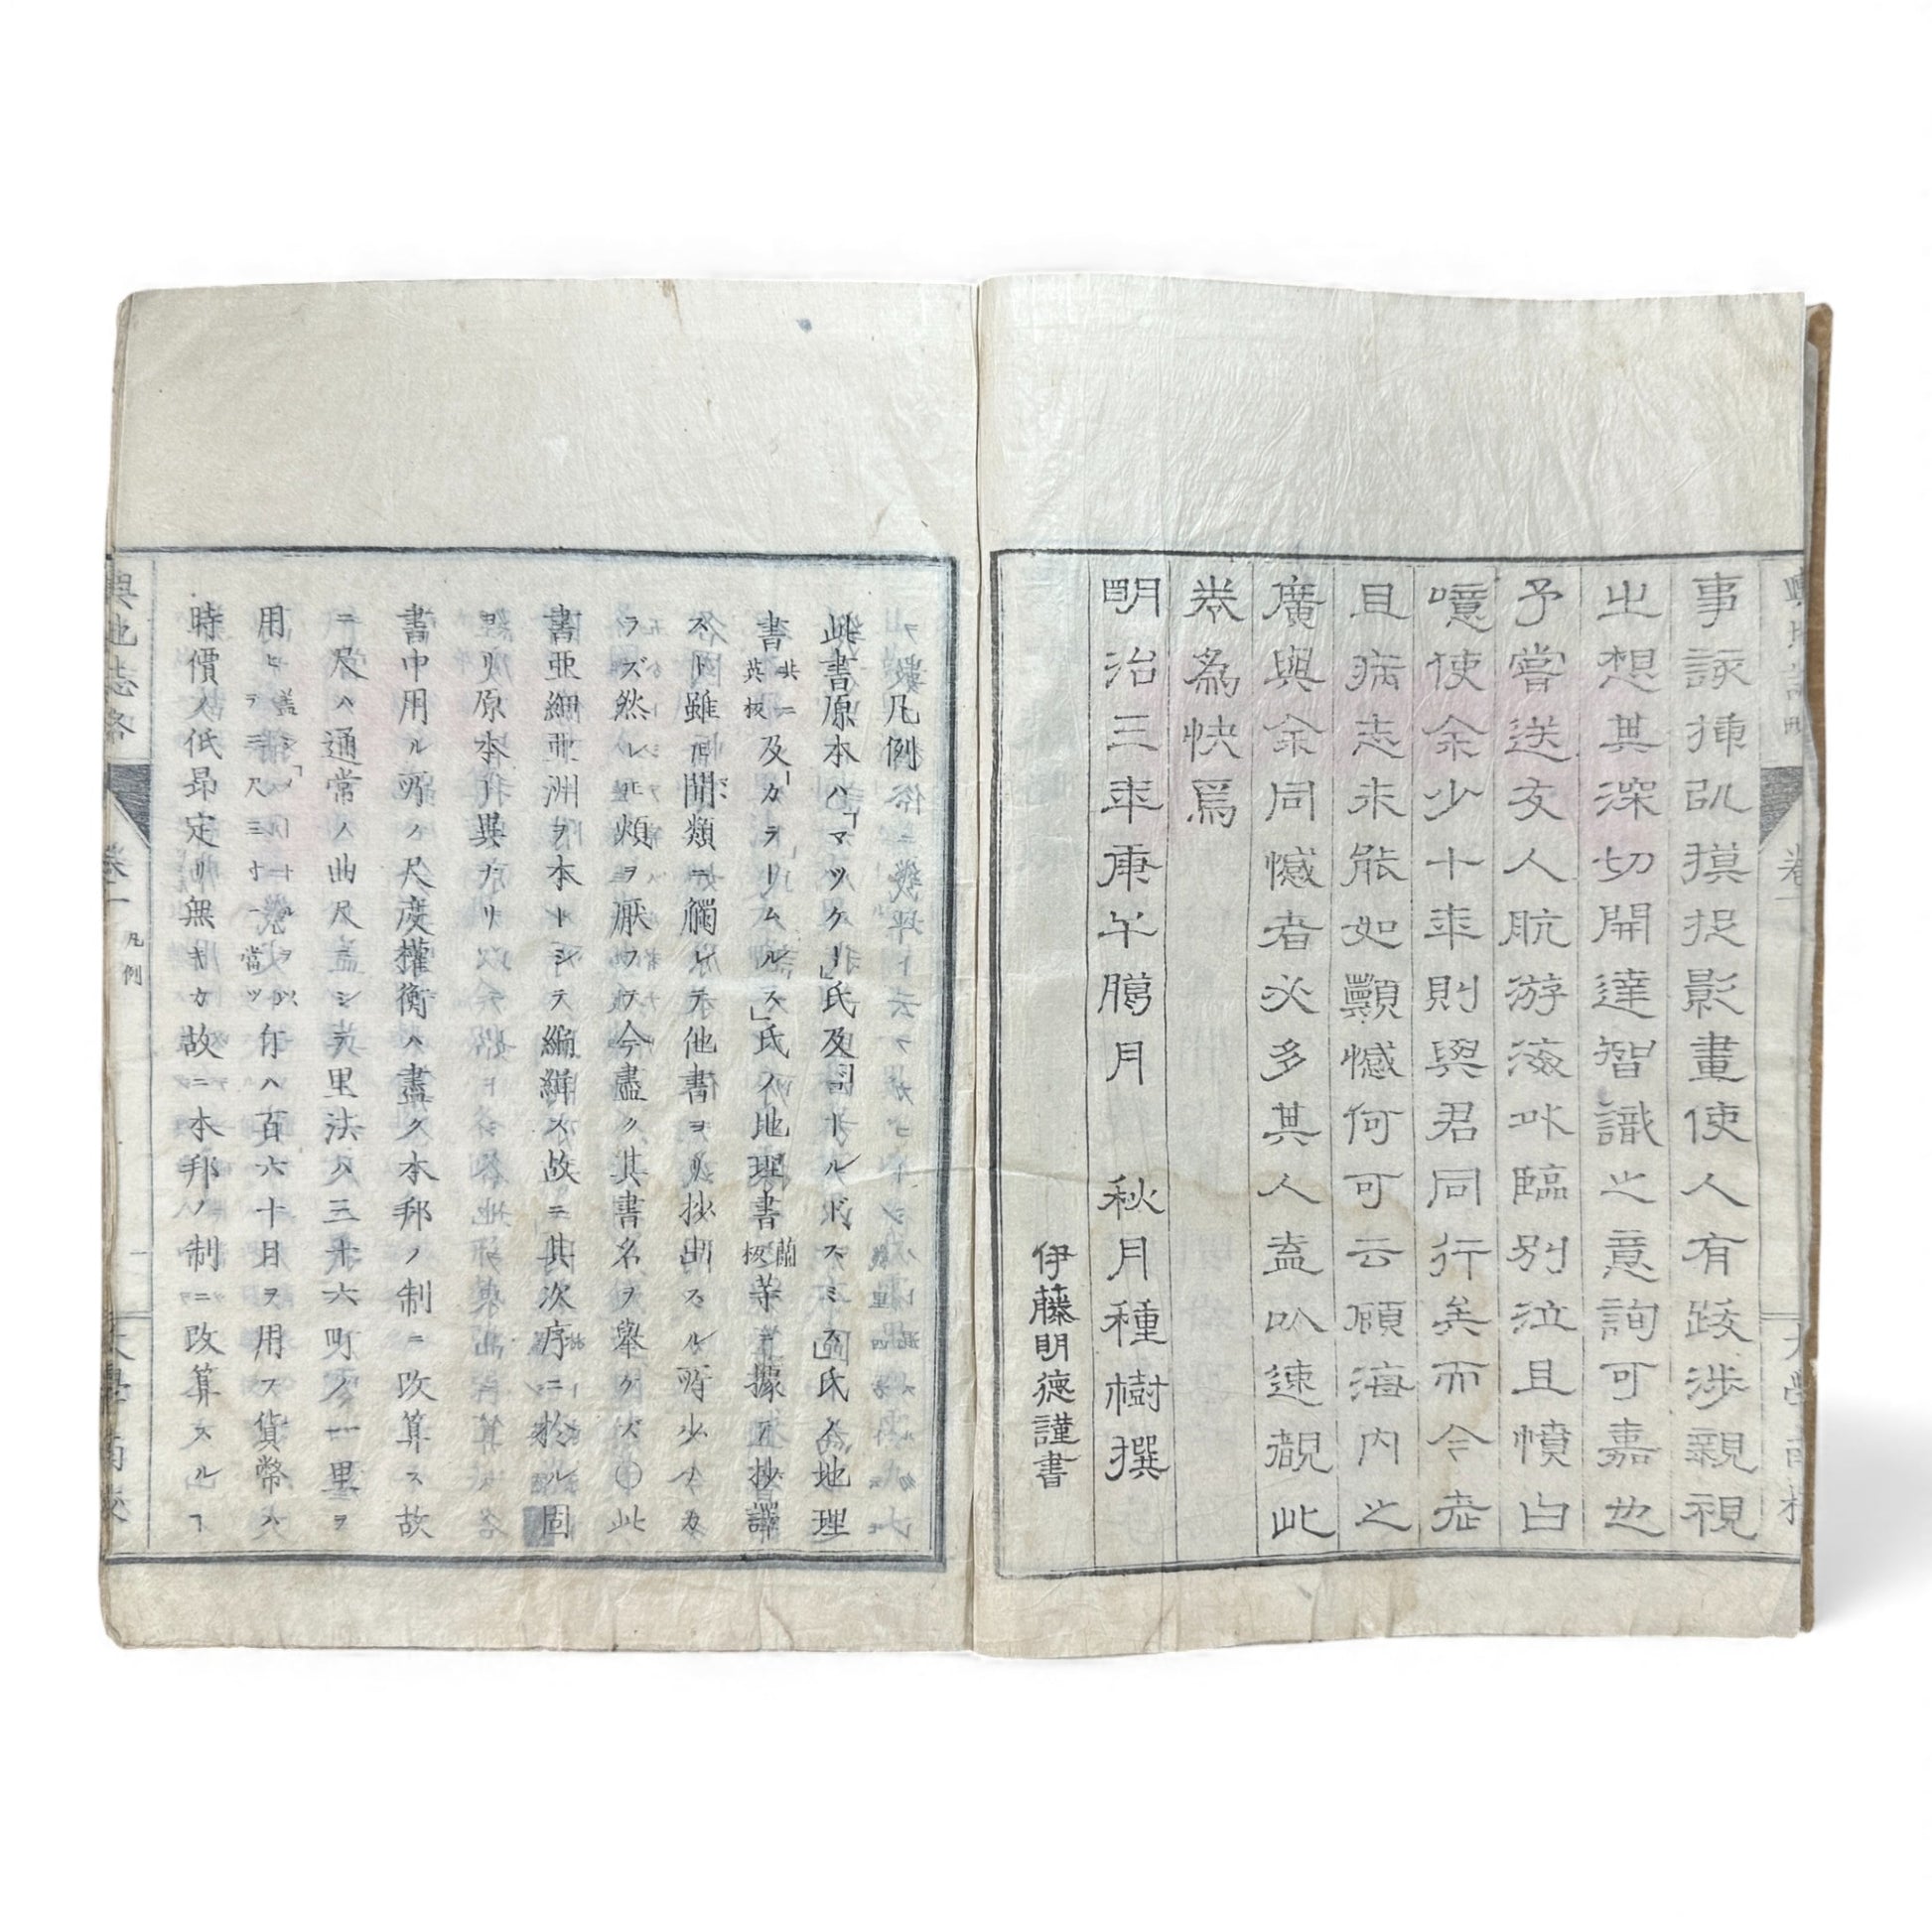 事諑揷㓚摸捉影畫使人有跋渉親視
之想其深切開達智識之意詢可嘉也
予嘗送友人航游海外臨別泣且憤白
噫使余少十年則與君同行矣而今老
且病志未能如顯憾何可云顧海内之
廣與余同憾者必多其人盍以速覩此
卷為快焉
明治三年庚午臈月　秋月種樹撰
伊藤明徳謹書
凡例
此書原本ハ「マツケー」氏及「コールドスミス」氏ノ地理
書共ニ英板及「カラームルス」氏ノ地理書蘭板等ニ據テ抄譯
スト雖𪜈間類ニ觸レテ他書ヨリ抄出スル所少ナカ
ラズ然レ𪜈煩ヲ厭フテ今盡ク其書名ヲ擧ゲズ〇此
書亜細亜洲ヲ本トシテ編緝ス故ニ其次序ニ於ル固
ヨリ原本ト異ナリ
書中用ル所ノ尺度權衡ハ盡ク本邦ノ制ニ改算ス故
ニ尺ハ通常ノ曲尺ニシテ里法ハ三十六町ノ一里ヲ
用ヒ年ハ百六十日ヲ用ス貨幣ハ
時價ノ低昂定リ無キカ故ニ本邦ノ制ニ改算スルヿ
輿地志略
卷一
凡例
大學南校
卷一
大學南校